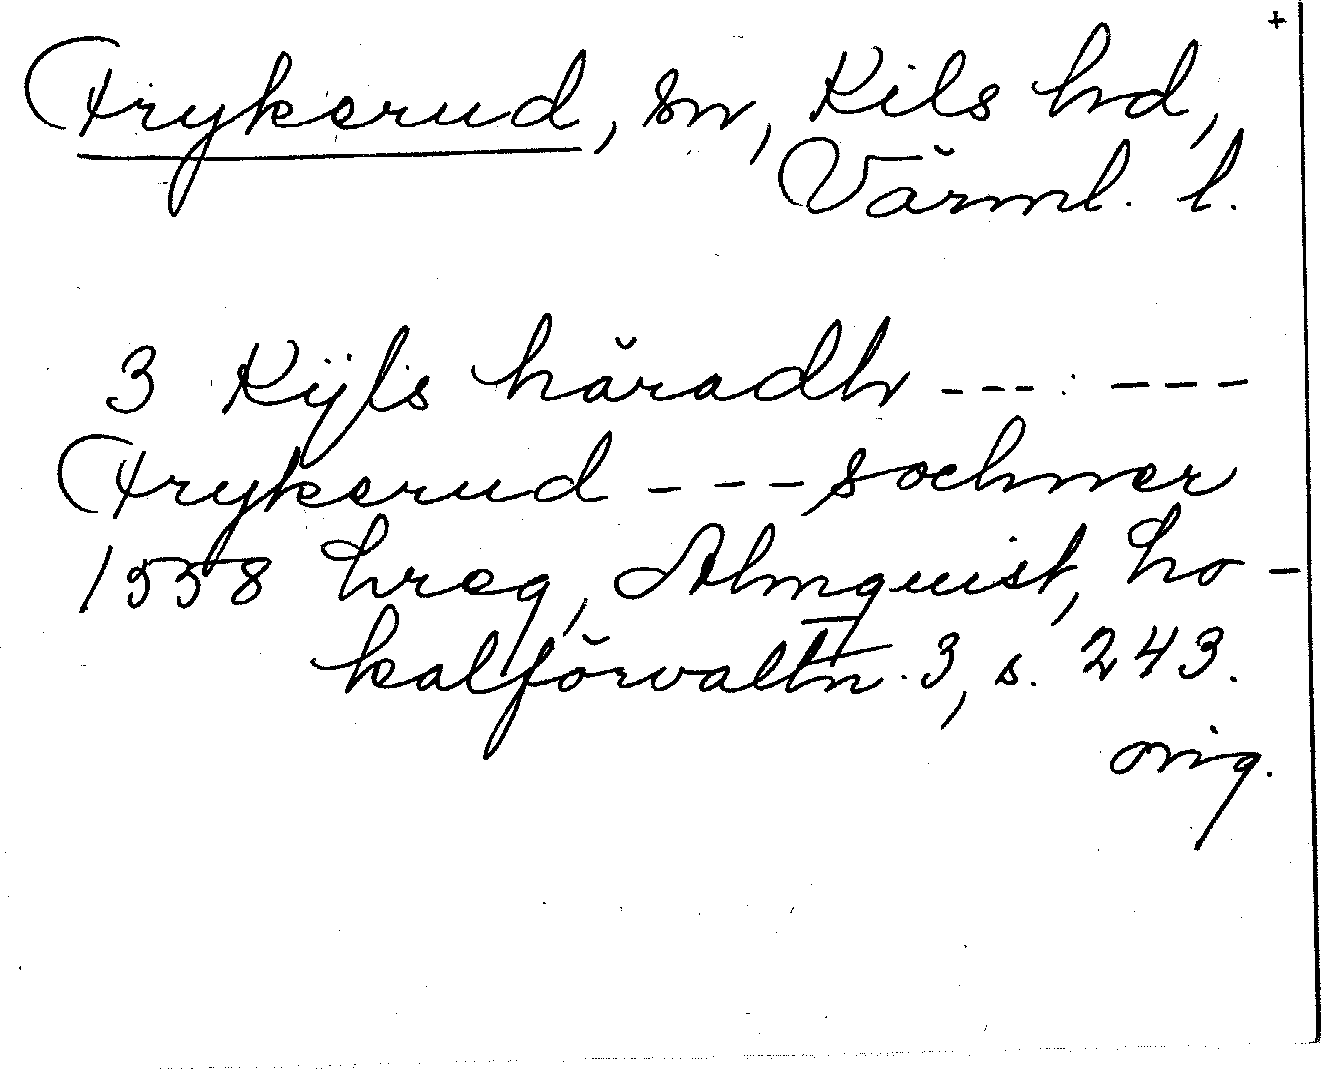 +
Frykerud, sn, Kils hd,
Värml. l.
3 Kijls häradh --- : ---
Frykerud --- sochner
1558 hreg, Almquist, Lo-
kalförvaltn. 3, s. 243.
orig.